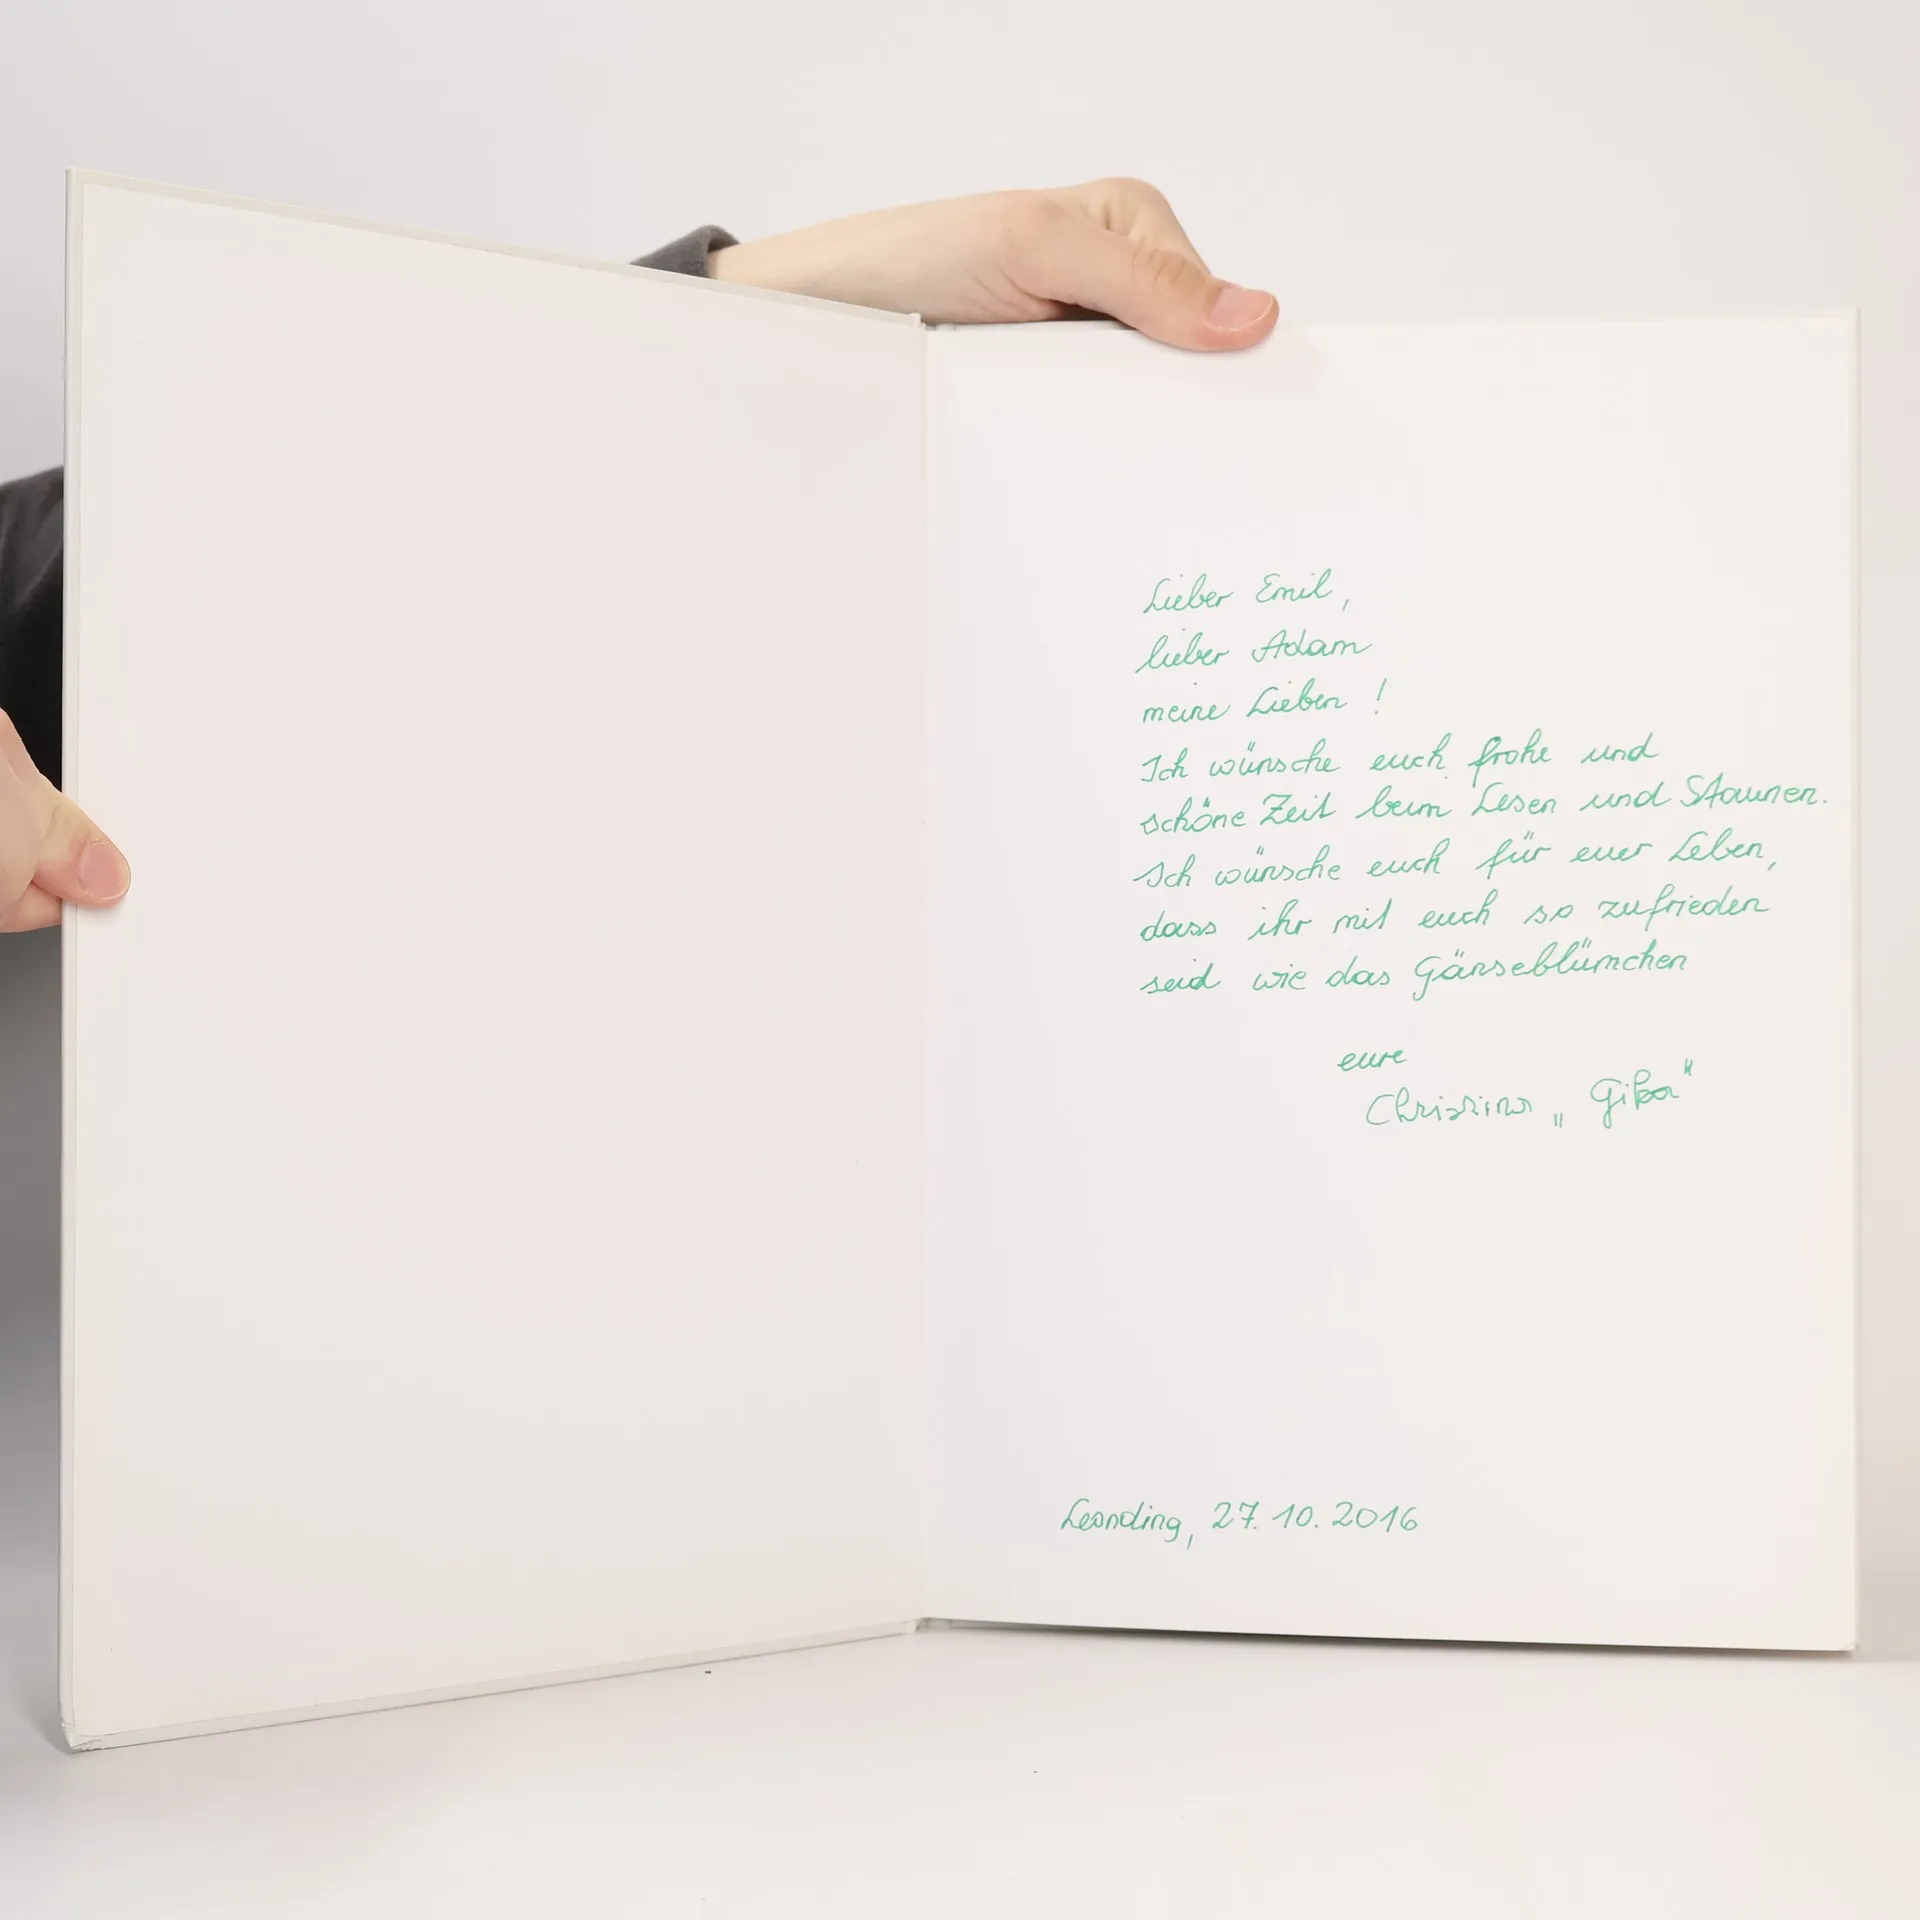 Lieber Emil,
lieber Adam
meine Lieben !
Ich wünsche euch frohe und
schöne Zeit beim Lesen und Staunen.
Ich wünsche euch für euer Leben,
dass ihr mit euch so zufrieden
seid wie das Gänseblümchen
eure
Leonding, 27.10.2016